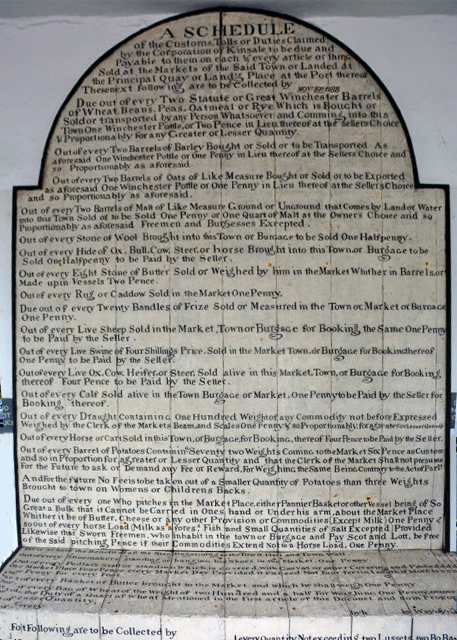 A SCHEDULE
of the Customs, Tolls or Duties Claimed
by the Corporation of Kinsale to be due and
Payable to them on each & every article or thing
Sold at the Markets of the Said Town or Landed at
the Principal Quay or Landg Place at the Port thereof
These next following are to be Collected by
Due out of evry Two Statute or Great Winchester Barrels
of Wheat, Beans, Peas, Oatmeal or Rye Which is Bought or
Sold or transported by any Person Whatsoever and Comming into this
Town One Winchester Pottle, or Two Pence in Lieu thereof at the Sellers Choice
& Proportionably for any Greater or Lesser Quantity.
Out of every Two Barrels of Barley Bought or Sold or to be Transported As
aforesaid One Winchester Pottle or One Penny in Lieu thereof at the Sellers Choice and
so Proportionably as aforesaid.
Out of every Two Barrels of Oats of Like Measure Bought or Sold or to be Exported
as aforesaid One Winchester Pottle or One Penny in Lieu thereof at the Sellers Choice
and so Proportionably as aforesaid.
Out of every Two Barrels of Malt of Like Measure Ground or Unground that Comes by Land or Water
into this Town Sold or to be Sold One Penny or One Quart of Malt at the Owners Choice and so
Proportionably as aforesaid Freemen and Burgesses Excepted.
Out of every Stone of Wool Brought into this Town or Burgage to be Sold One Halfpenny.
Out of every Hide of Ox, Bull, Cow, Steer, or horse Brought into this Town, or Burgage to be
Sold One Halfpenny to be Paid by the Seller.
Out of every Eight Stone of Butter Sold or Weighed by him in the Market Whither in Barrels, or
Made up in Vessels Two Pence.
Out of every Rug or Caddow Sold in the Market One Penny.
Due out of every Twenty Bandles of Frize Sold or Measured in the Town or Market or Burgage
One Penny.
Out of every Live Sheep Sold in the Market, Town or Burgage for Booking, the Same One Penny
to be Paid by the Seller.
Out of every Live Swine of Four Shillings Price, Sold in the Market Town, or Burgage for Booking thereof
One Penny to be Paid by the Seller.
Out of every Live Ox, Cow, Heifer, or Steer, Sold alive in this Market, Town, or Burgage for Booking
thereof Four Pence to be Paid by the Seller.
Out of every Calf Sold alive in the Town Burgage or Market, One Penny to be Paid by the Seller for
Booking thereof.
Out of every Draught Containing One Hundred Weight of any Commodity not before Expressed
Weighed by the Clerk of the Markets Beam, and Scales One Penny & so Proportionably, for a Greater or Lesser Quantity
Out of every Horse or Cart Sold in this Town, or Burgage, for Booking, thereof Four Pence to be Paid by the Seller.
Out of every Barrel of Potatoes Seventy two Weights Coming to the Market Six Pence as Custom
and so in Proportion for a greater or Lesser Quantity and that the Clerk of the Market shall not presume
For the Future to ask or Demand any Fee or Reward, For Weighing the Same Being Contrary to the Act of Parlt
And for the Future No Fees is to be taken out of a Smaller Quantity of Potatoes than three Weights
Brought to town on Womens or Childrens Backs.
Due out of every one Who pitches in the Market Place, either Pannier Basket or other Vessel being of So
Great a Bulk that it Cannot be Carried in Ones hand or under his arm, about the Market Place
Whither it be of Butter, Cheese or any other Provision or Commodities (Except Milk) One Penny
so out of every horse Load Milk as aforesd Fish and Small Quantities of salt Excepted Provided
Likewise that Sworn Freemen, who inhabit in the town or Burgage and Pay Scot and Lott, be free
of the Said pitching Pence if their Commodities Extend Not to a Horse Load, One Penny.
of every Basket of Butter brought to the Market and which he shall weigh One Penny
Fort Following, are to be Collected by